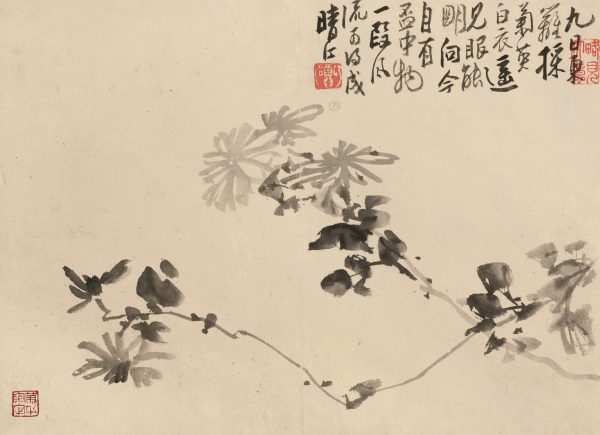 九日東
籬採
菊英
白衣遙
見眼能
明向今
自有
盃中物
一段風
流可得成
晴江